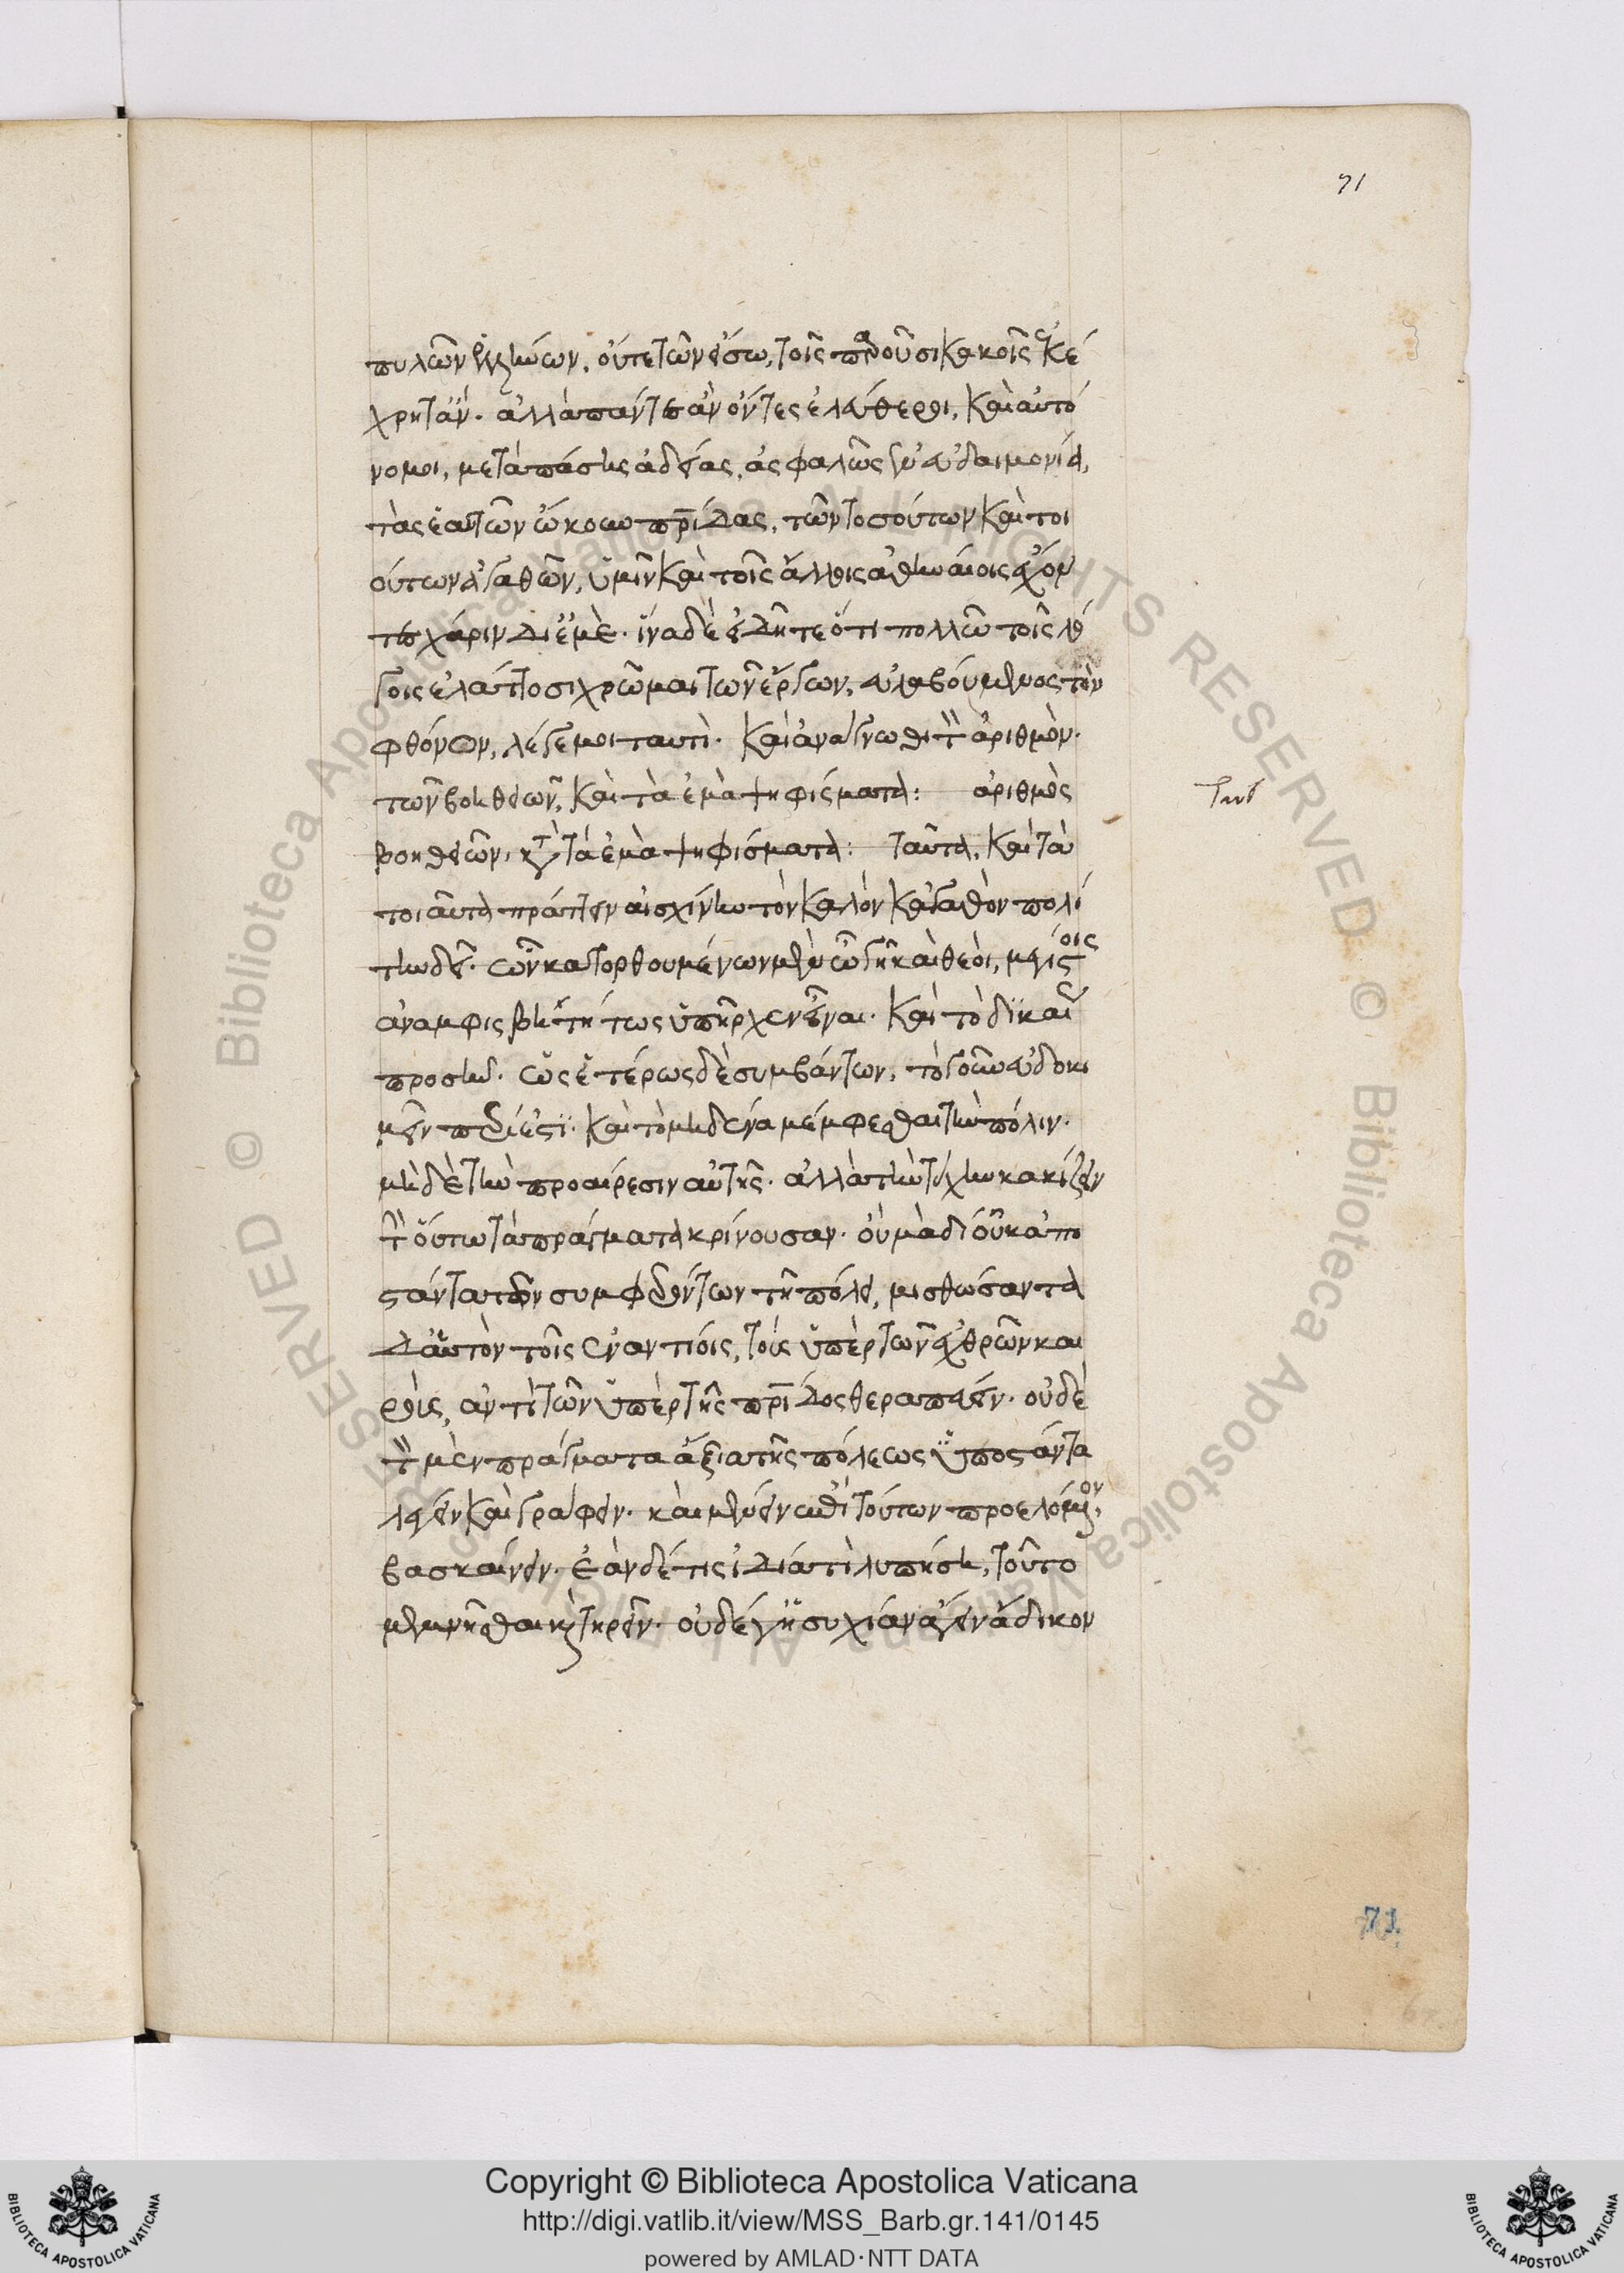 71
πυλῶν ἑλλήνων, οὔτε τῶν εἴσω, τοῖς παροῦσι κακοῖς ἐκέ
χρητ' ἄν. ἀλλὰ πάντες ἂν ὄντες ἐλεύθεροι, καὶ αὐτό
νομοι, μετὰ πάσης ἀδείας, ἀσφαλῶς ἐν εὐδαιμονίᾳ,
τὰς ἑαυτῶν ὤκουν πρίδας, τῶν τοσούτων καὶ τοι
ούτων ἀγαθῶν, ὑμῖν καὶ τοῖς ἄλλοις ἀθηναίοις ἔχον
τες χάριν δι' ἐμὲ. ἵνα δὲ εἰδῆτε ὅτι πολλῷ τοῖς λό
γοις ἐλάττοσι χρῶμαι τῶν ἔργων, εὐλαβούμενος τὸν
φθόνον, λέγε μοι ταυτὶ. καὶ ἀνάγνωθι τὸν ἀριθμὸν
τῶν βοηθειῶν, καὶ τὰ ἐμὰ ψηφίσματα: ἀριθμὸς
βοηθειῶν, κατὰ τὰ ἐμὰ ψηφίσματα: ταῦτα, καὶ τὰ
τοιαῦτα πράττειν αἰσχίνη τὸν καλὸν κἀγαθὸν πολί
την δεῖ. ὧν κατορθουμένων μὲν ὦ γῆ καὶ θεοὶ, μεγίστοις
ἀναμφισβητήτως ὑπῆρχεν εἶναι. καὶ τὸ δικαί
προσῆν. ὡς ἑτέρως δὲ συμβάντων, τὸ γοῦν εὐδοκι
μεῖν περίεστι. καὶ τὸ μηδένα μέμφεσθαι τὴν πόλιν.
μηδὲ τὴν προαίρεσιν αὐτῆς. ἀλλὰ τὴν τύχην κακίζειν
τὴν οὕτω τὰ πράγματα κρίνουσαν. οὐ μὰ δί' οὐκ ἀπο
στάντα τῶν συμφερόντων τῇ πόλει, μισθώσαντα
δ' αὑτὸν τοῖς ἐναντίοις, τοὺς ὑπὲρ τῶν ἐχθρῶν και
ροὺς, ἀντὶ τῶν ὑπὲρ τῆς πρίδος θεραπεύειν. οὐδὲ
τὸν μὲν πράγματα ἄξια τῆς πόλεως ὑποστάντα
λέγειν καὶ γράφειν. καὶ μένειν ἐπὶ τούτων προελόμενον,
βασκαίνειν. ἐὰν δέ τις ἰδίᾳ τι λυπήσῃ, τοῦτο
μεμνῆσθαι καὶ τηρεῖν. οὐδέ γ' ἡσυχίαν ἄγειν ἄδικον
71
Copyright © Biblioteca Apostolica Vaticana
http://digi.vatlib.it/view/MSS_Barb.gr.141/0145
powered by AMLAD·NTT DATA
BIBLIOTECA APOSTOLICA VATICANA
BIBLIOTECA APOSTOLICA VATICANA